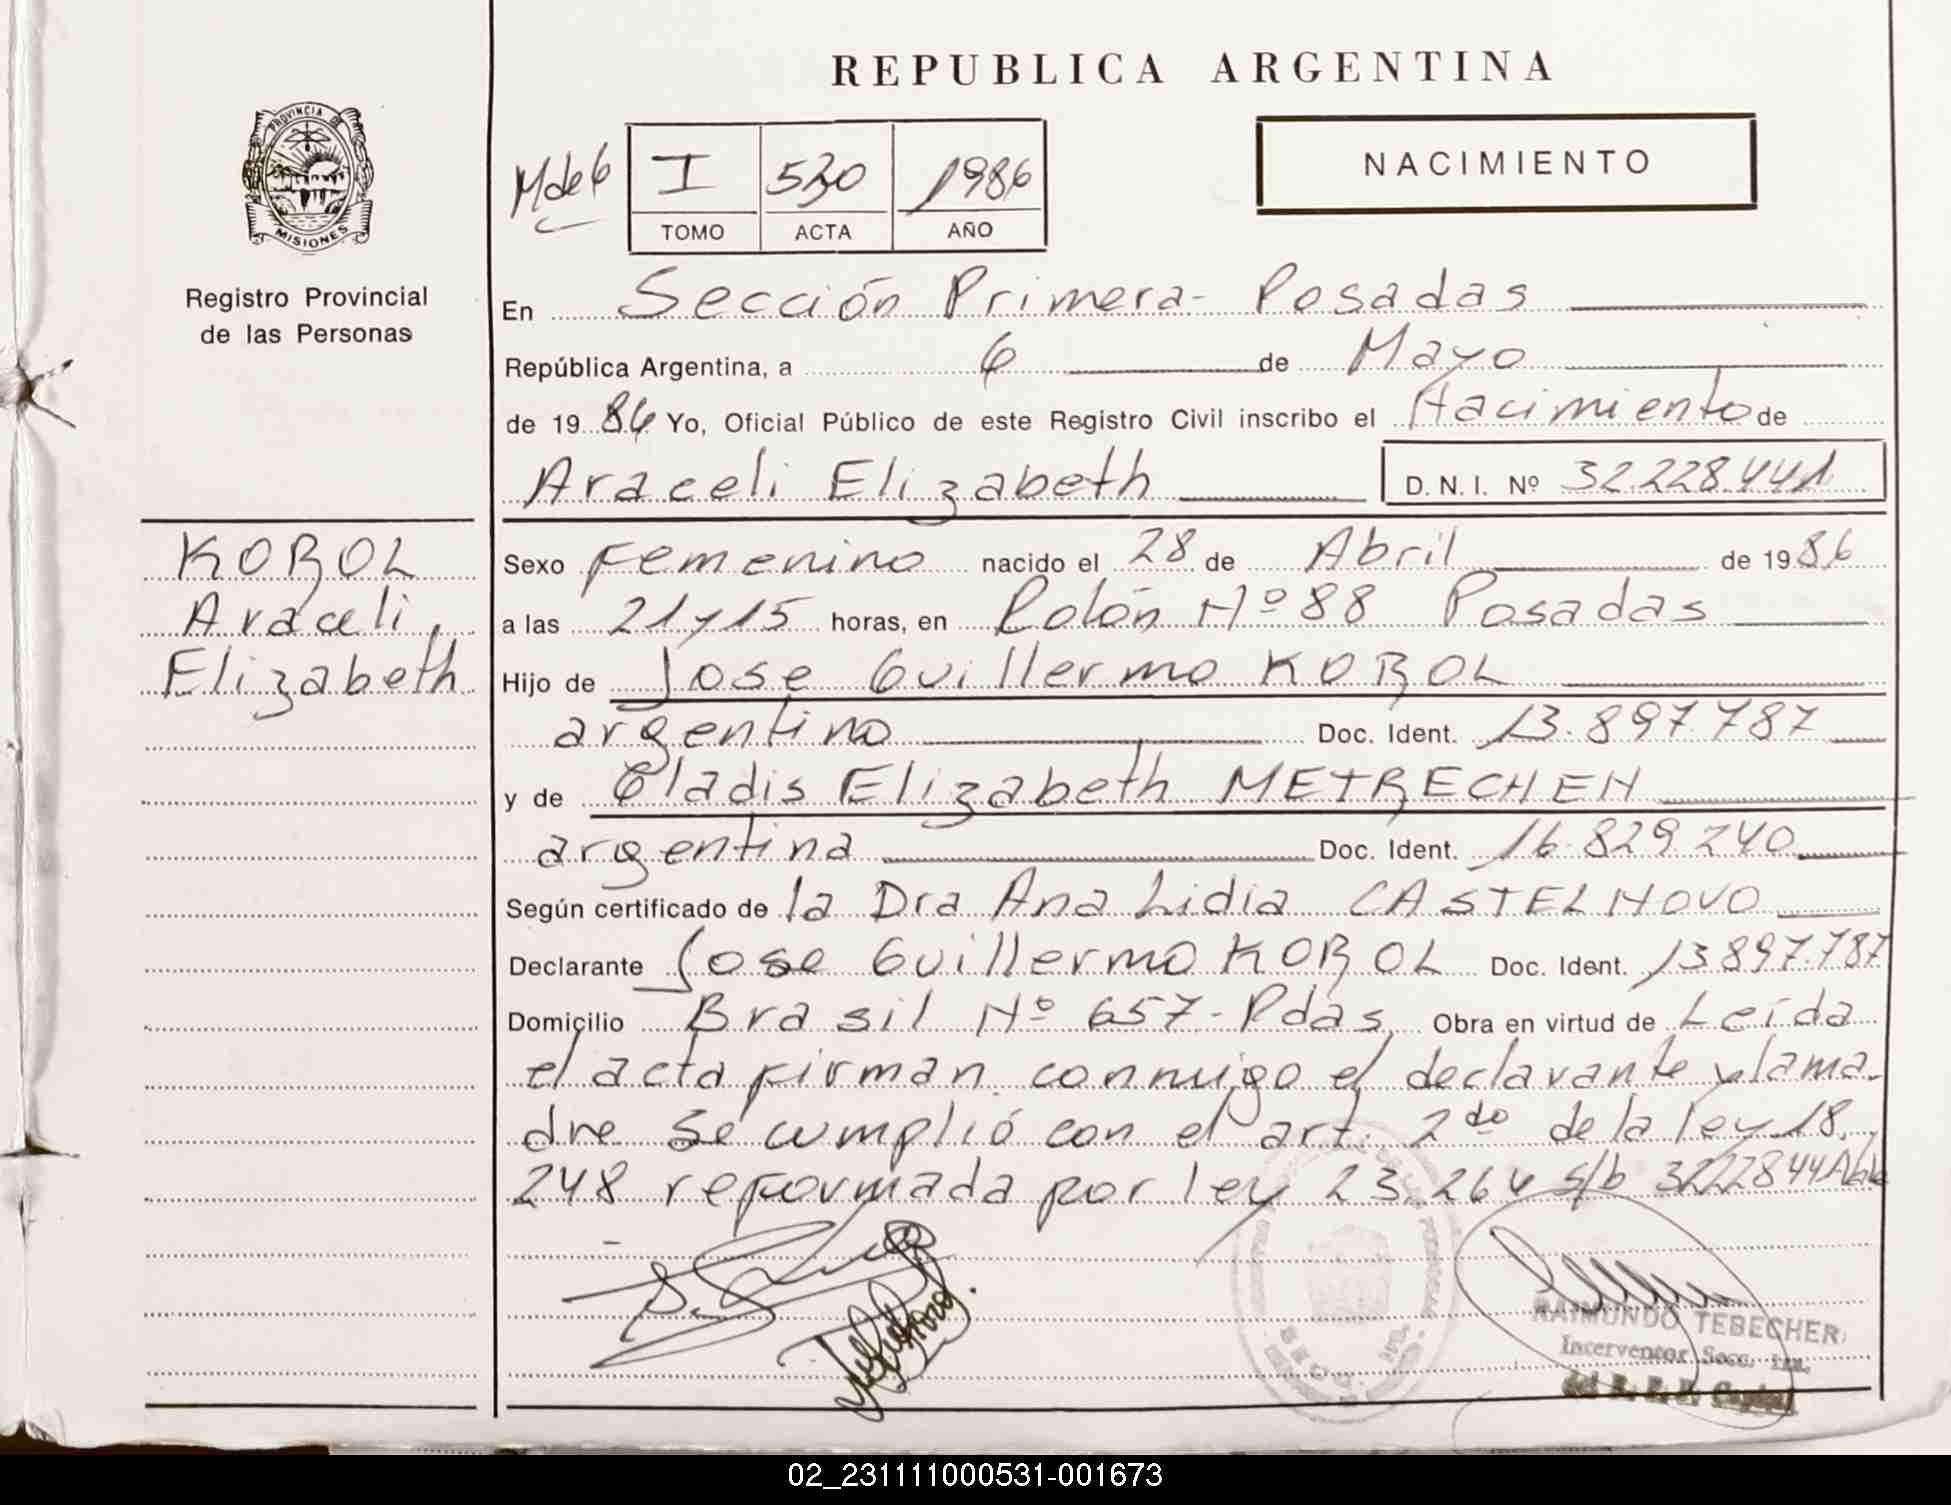 REPUBLICA ARGENTINA
PROVINCIA DE
MISIONES
Registro Provincial
de las Personas
M de 6
I 530 1986
TOMO ACTA AÑO
NACIMIENTO
En Sección Primera - Posadas
República Argentina, a 6 de Mayo
de 1986 Yo, Oficial Público de este Registro Civil inscribo el Nacimiento de
Araceli Elizabeth D. N. I. Nº 32.228.441
KOROL
Araceli
Elizabeth
Sexo Femenino nacido el 28 de Abril de 1986
a las 21 y 15 horas, en Colón Nº 88 Posadas
Hijo de Jose Guillermo KOROL
argentino Doc. Ident. 13.897.787
y de Gladis Elizabeth METRECHEN
argentina Doc. Ident. 16.829.240
Según certificado de la Dra Ana Lidia CASTELNOVO
Declarante Jose Guillermo KOROL Doc. Ident. 13.897.787
Domicilio Brasil Nº 657 - Pdas Obra en virtud de Leída
el acta firman conmigo el declarante y la ma-
dre se cumplió con el art. 2do de la ley 18.
248 reformada por ley 23.264 s/b 32228441
RAIMUNDO TEBECHER
Interventor Secc.
02_231111000531-001673